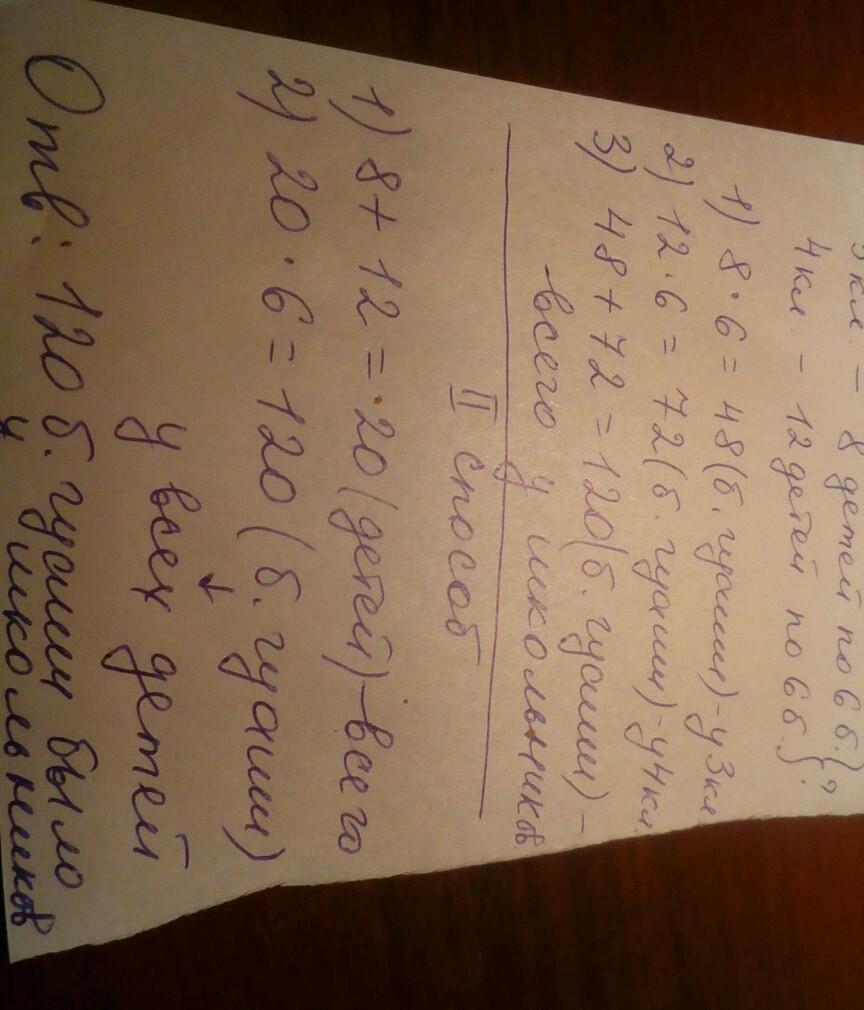 3 кл. – 8 детей по 6 б. } ?
4 кл. – 12 детей по 6 б. }
1) 8 · 6 = 48 (б. гуаши) - у 3 кл
2) 12 · 6 = 72 (б. гуаши) - у 4 кл.
3) 48 + 72 = 120 (б. гуаши) –
всего у школьников
II способ
1) 8 + 12 = 20 (детей) – всего
2) 20 · 6 = 120 (б. гуаши)
у всех детей
Отв: 120 б. гуаши было
у школьников